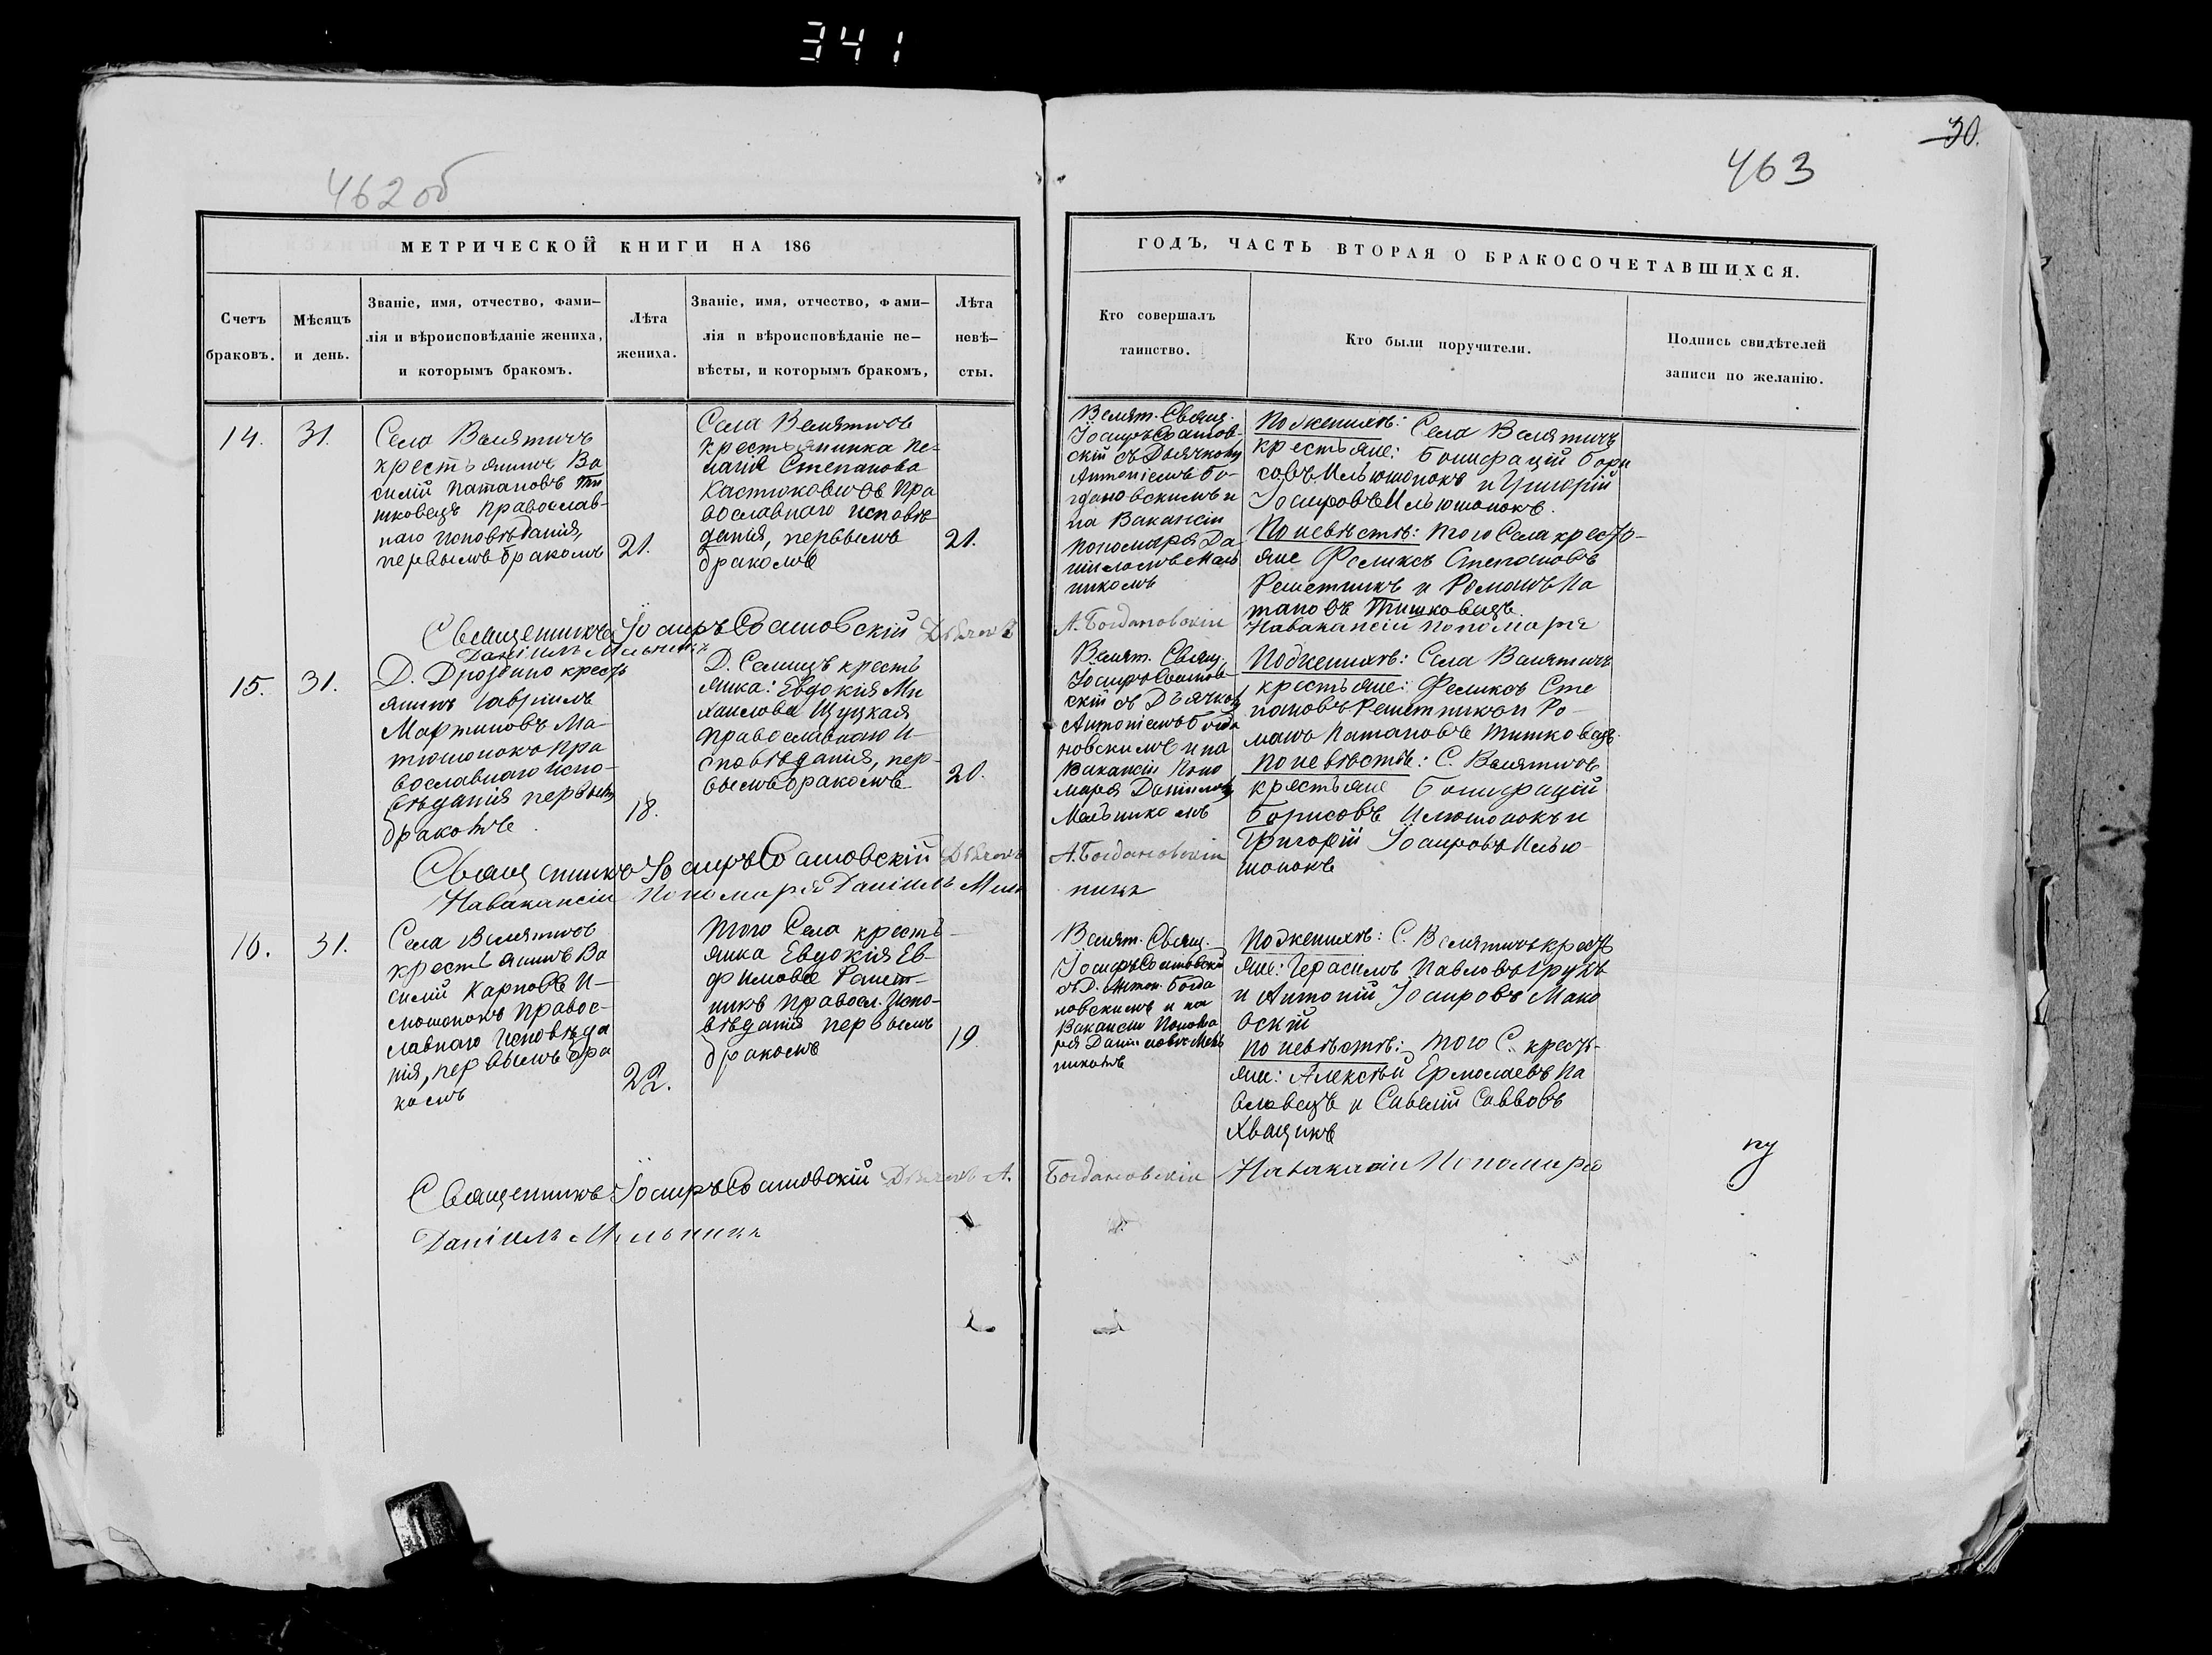 341
30.
462 об
463
МЕТРИЧЕСКОЙ КНИГИ НА 186
ГОДЪ, ЧАСТЬ ВТОРАЯ О БРАКОСОЧЕТАВШИХСЯ.
Счетъ
браковъ.
Мѣсяцъ
и день.
Званіе, имя, отчество, фами-
лія и вѣроисповѣданіе жениха,
и которымъ бракомъ.
Лѣта
жениха.
Званіе, имя, отчество, фами-
лія и вѣроисповѣданіе не-
вѣсты, и которымъ бракомъ,
Лѣта
невѣ-
сты.
Кто совершалъ
таинство.
Кто были поручители.
Подпись свидѣтелей
записи по желанію.
14.
31.
Села Велятичъ
крестьянинъ Ва
силій Патаповъ Ти
шковецъ Православ-
наго Исповѣданія,
первымъ бракомъ
21.
Села Велятичъ
крестьянинка Пе-
лагія Степанова
Кастюковичъ Пра
вославнаго исповѣ
данія, первымъ
бракомъ
21.
Велят. Свящ.
Іосифъ
скій съ Дьячкомъ
Антоніемъ Бо-
гдановскимъ и
на Вакансіи
Пономаря Да
ніиломъ Мель
никомъ
А. Богдановскій
По женихѣ: Села Велятичъ
крестьяне: Бонифацій Бори
совъ Ильюшонокъ и Григорій
Іосифовъ Ильюшонокъ.
По невѣстѣ: того Села кресть-
яне Феликсъ Степановъ
Решетникъ и Романъ Па
таповъ Тишковецъ.
На вакансіи пономаря
Священникъ Іосифъ
Даніилъ Мельникъ
15.
31.
Д. Дроздино кресть
янинъ Гавріилъ
Мартиновъ Ма-
тюшонокъ Пра
вославнаго Испо-
вѣданія первымъ
бракомъ
18.
Д. Селищъ кресть
янка: Евдокія Ми
хаилова Щуцкая
Православнаго И-
сповѣданія, пер-
вымъ бракомъ
20.
Велят. Свящ.
Іосифъ
скій съ Дьячкомъ
Антоніемъ Богда
новскимъ и на
Вакансіи Поно
маря Даніиломъ
Мельникомъ
А. Богдановскій
По женихѣ: Села Велятичъ
крестьяне: Феликсъ Сте
пановъ Решетникъ и Ро-
манъ Патаповъ Тишковецъ.
По невѣстѣ: С. Велятичъ
крестьяне Бонифацій
Борисовъ Илюшонокъ и
Григорій Іосифовъ Илью-
шонокъ
Священникъ Іосифъ
На вакансіи Пономаря Даніилъ Мель
никъ
16.
31.
Села Велятичъ
крестьянинъ Ва
силій Карповъ И-
люшонокъ Правос-
лавнаго Исповѣда
нія, первымъ бра
комъ
22.
Того Села кресть-
янка Евдокія Ев-
фимова Решет-
никъ Правосл. Испо-
вѣданія первымъ
бракомъ
19
Велят. Свящ.
Іосифъ
съ Д. Антон. Богда
новскимъ и на
Вакансіи Понома
ря Даніиломъ Мель
никомъ
По женихѣ: С. Велятичъ кресть
яне: Герасимъ Павловъ
и Антоній Іосифовъ Мако
вскій
По невѣстѣ: того С. кресть-
яне: Алексѣй Ермолаевъ Па
вловецъ и Савелій Савовъ
Хващикъ
Священникъ Іосифъ
Дьячокъ А. Богдановскій На вакансіи Пономаря
Даніилъ Мельникъ